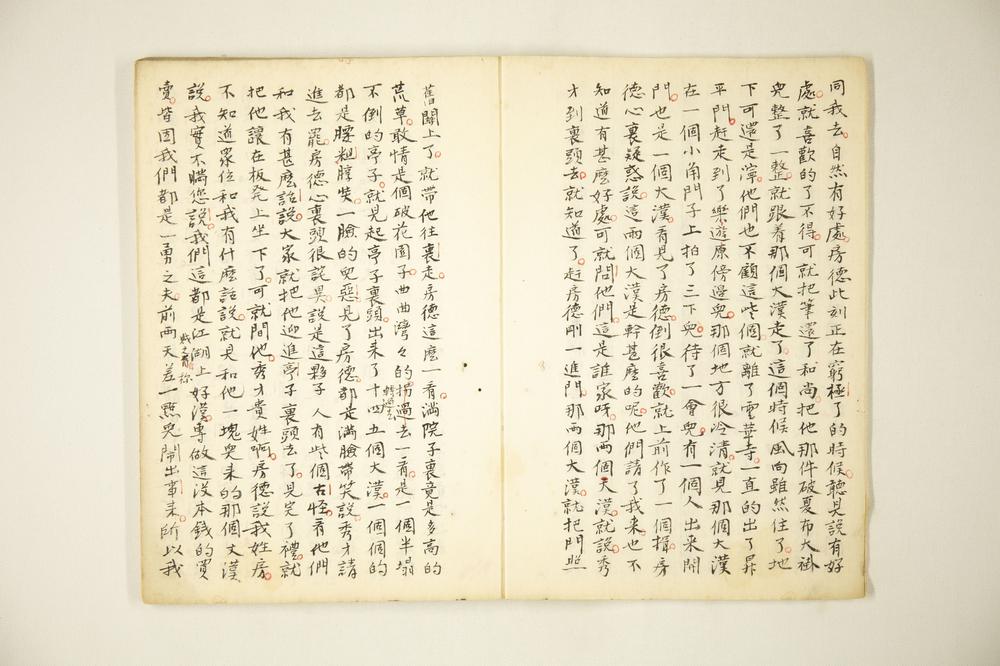 同我去。自然有好處。房德此刻正在窮極了的時候。聽見說有好
處。就喜歡的了不得。可就把筆還了和尚。把他那件破夏布大褂
兒整了一整。就跟着那個大漢走了。這個時候風雨雖然住了。地
下可還是濘。他們也不顧這些個。就離了雲華寺。一直的出了昇
平門。赶走到了樂遊原傍邊兒。那個地方很冷清。就見那個大漢
在一個小角門子上拍了三下兒。待了一會兒。有一個人出來開
門。也是一個大漢。看見了房德。倒很喜歡。就上前作了一個揖。房
德心裏疑惑。說。這兩個大漢是幹甚麽的呢。他們請了我來。也不
知道有甚麽好處。可就問他們。這是誰家呀。那兩個大漢就說。秀
才到裏頭去。就知道了。赶房德剛一進門。那兩個大漢。就把門照
舊關上了。就帶他往裏走。房德這麽一看。滿院子裏竟是多高的
荒草。敢情是個破花園子。曲曲灣々的拐過去一看。是一個半塌
轉過去
不倒的亭子。就見起亭子裏頭。出來了十四五個大漢。一個個的
都是膀粗膛奘。一臉的兇惡。見了房德。都是滿臉帶笑。說。秀才請
進去罷。房德心裏頭很詫異。說是這夥子人有些個古怪。看他們
和我有甚麽話說。大家就把他迎進亭子裏頭去了。見完了禮。就
把他讓在板凳上坐下了。可就問他。秀才貴姓啊。房德說。我姓房。
不知道眾位和我有什麽話說。就見和他一塊兒來的那個丈漢
說。我實不瞞您說。我們這都是江湖上好漢。專做這没本錢的買
賣。皆因我們都是一勇之夫。前兩天差一點兒鬧出事來。所以我